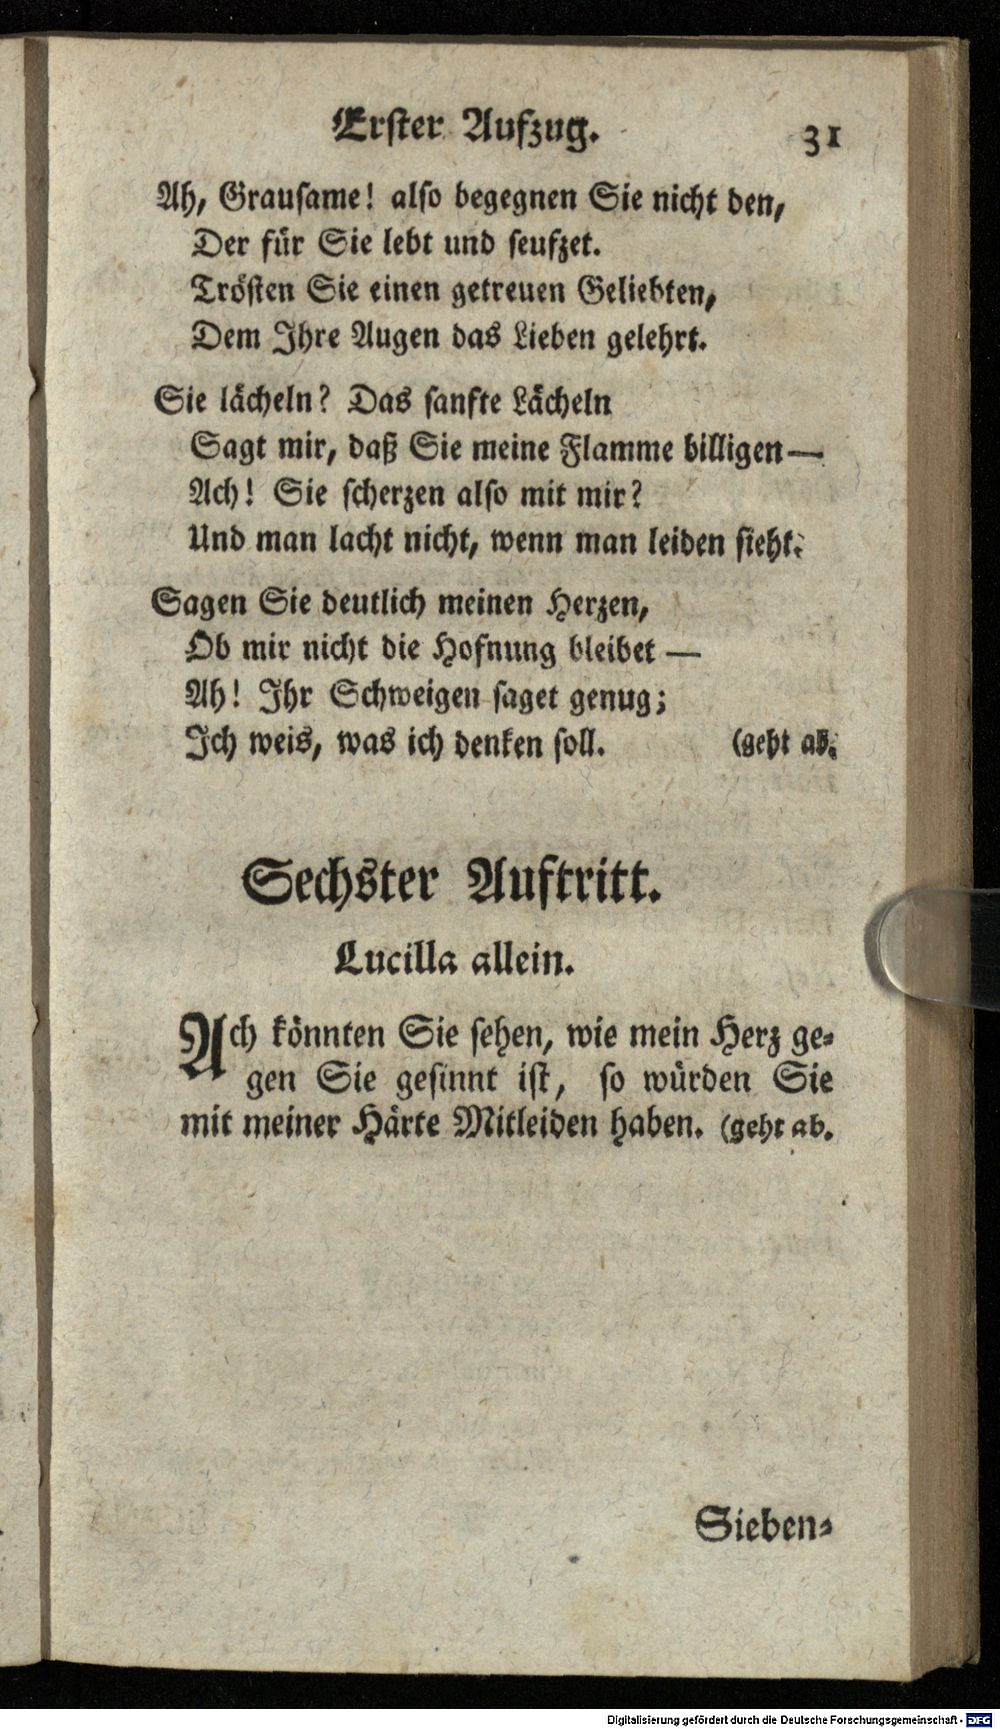 Erster Aufzug. 31
Ah, Grausame! also begegnen Sie nicht den,
Der für Sie lebt und seufzet.
Trösten Sie einen getreuen Geliebten,
Dem Ihre Augen das Lieben gelehrt.
Sie lächeln? Das sanfte Lächeln
Sagt mir, daß Sie meine Flamme billigen —
Ach! Sie scherzen also mit mir?
Und man lacht nicht, wenn man leiden sieht.
Sagen Sie deutlich meinen Herzen,
Ob mir nicht die Hofnung bleibet —
Ah! Ihr Schweigen saget genug;
Ich weis, was ich denken soll. (geht ab.
Sechster Auftritt.
Lucilla allein.
Ach könnten Sie sehen, wie mein Herz ge-
gen Sie gesinnt ist, so würden Sie
mit meiner Härte Mitleiden haben. (geht ab.
Sieben-
Digitalisierung gefördert durch die Deutsche Forschungsgemeinschaft - DFG